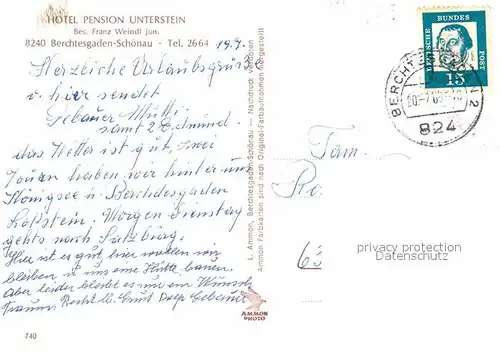 HOTEL PENSION UNTERSTEIN
Bes. Franz Weindl jun.
8240 Berchtesgaden-Schönau - Tel. 2664
19.7.
Herzliche Urlaubsgrüße
v. hier sendet
Gebauer Mutti
samt 2 Edmund.
das Wetter ist gut, zwei
Touren haben wir hinter uns
Königsee u. Berchdesgaden
Morgen Dienstag
gehts nach Salzburg.
Hier ist es gut hier wollen wir
bleiben u. uns eine Hütte bauen.
Aber leider bleibt es nur ein Wunsch
Traum. Gebauer
740
L. Ammon, Berchtesgaden-Schönau — Nachdruck verboten
Ammon Farbkarten sind nach Original-Farbaufnahmen hergestellt
AMMON
PHOTO
DEUTSCHE BUNDESPOST
15
BERCHT
2
824
Fam.
privacy protection
Datenschutz